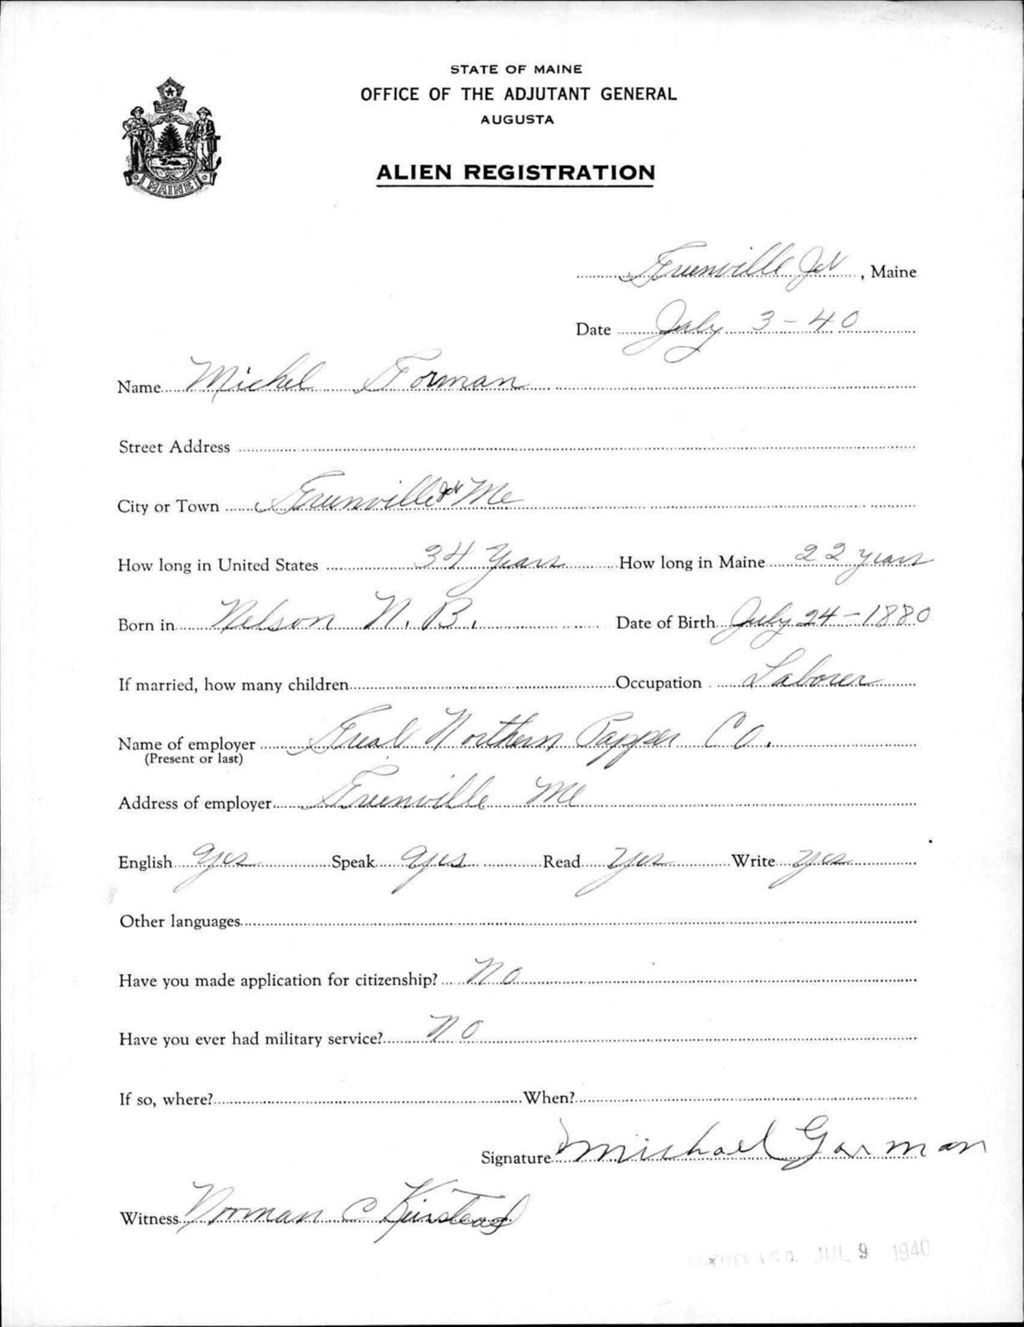 STATE OF MAINE
OFFICE OF THE ADJUTANT GENERAL
AUGUSTA
ALIEN REGISTRATION
MAINE
Greenville Jct, Maine
Date July 3-40
Name Michel Gorman
Street Address
City or Town Greenville Jct Me
How long in United States 34 Years How long in Maine 22 years
Born in Nelson N.B. Date of Birth July 24-1880
If married, how many children Occupation Laborer
Name of employer Great Northern Papper Co.
(Present or last)
Address of employer Greenville Me
English Yes Speak Yes Read Yes Write Yes
Other languages
Have you made application for citizenship? No
Have you ever had military service? No
If so, where? When?
Signature Michael Gorman
Witness Norman C Keirstead
JUL 9 1940